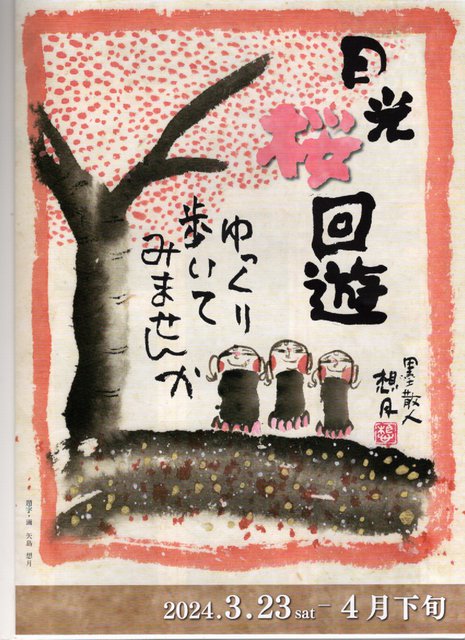 日光
桜
回遊
ゆっくり
歩いて
みませんか
想月
題字・画 矢島 想月
2024.3.23sat－4月下旬